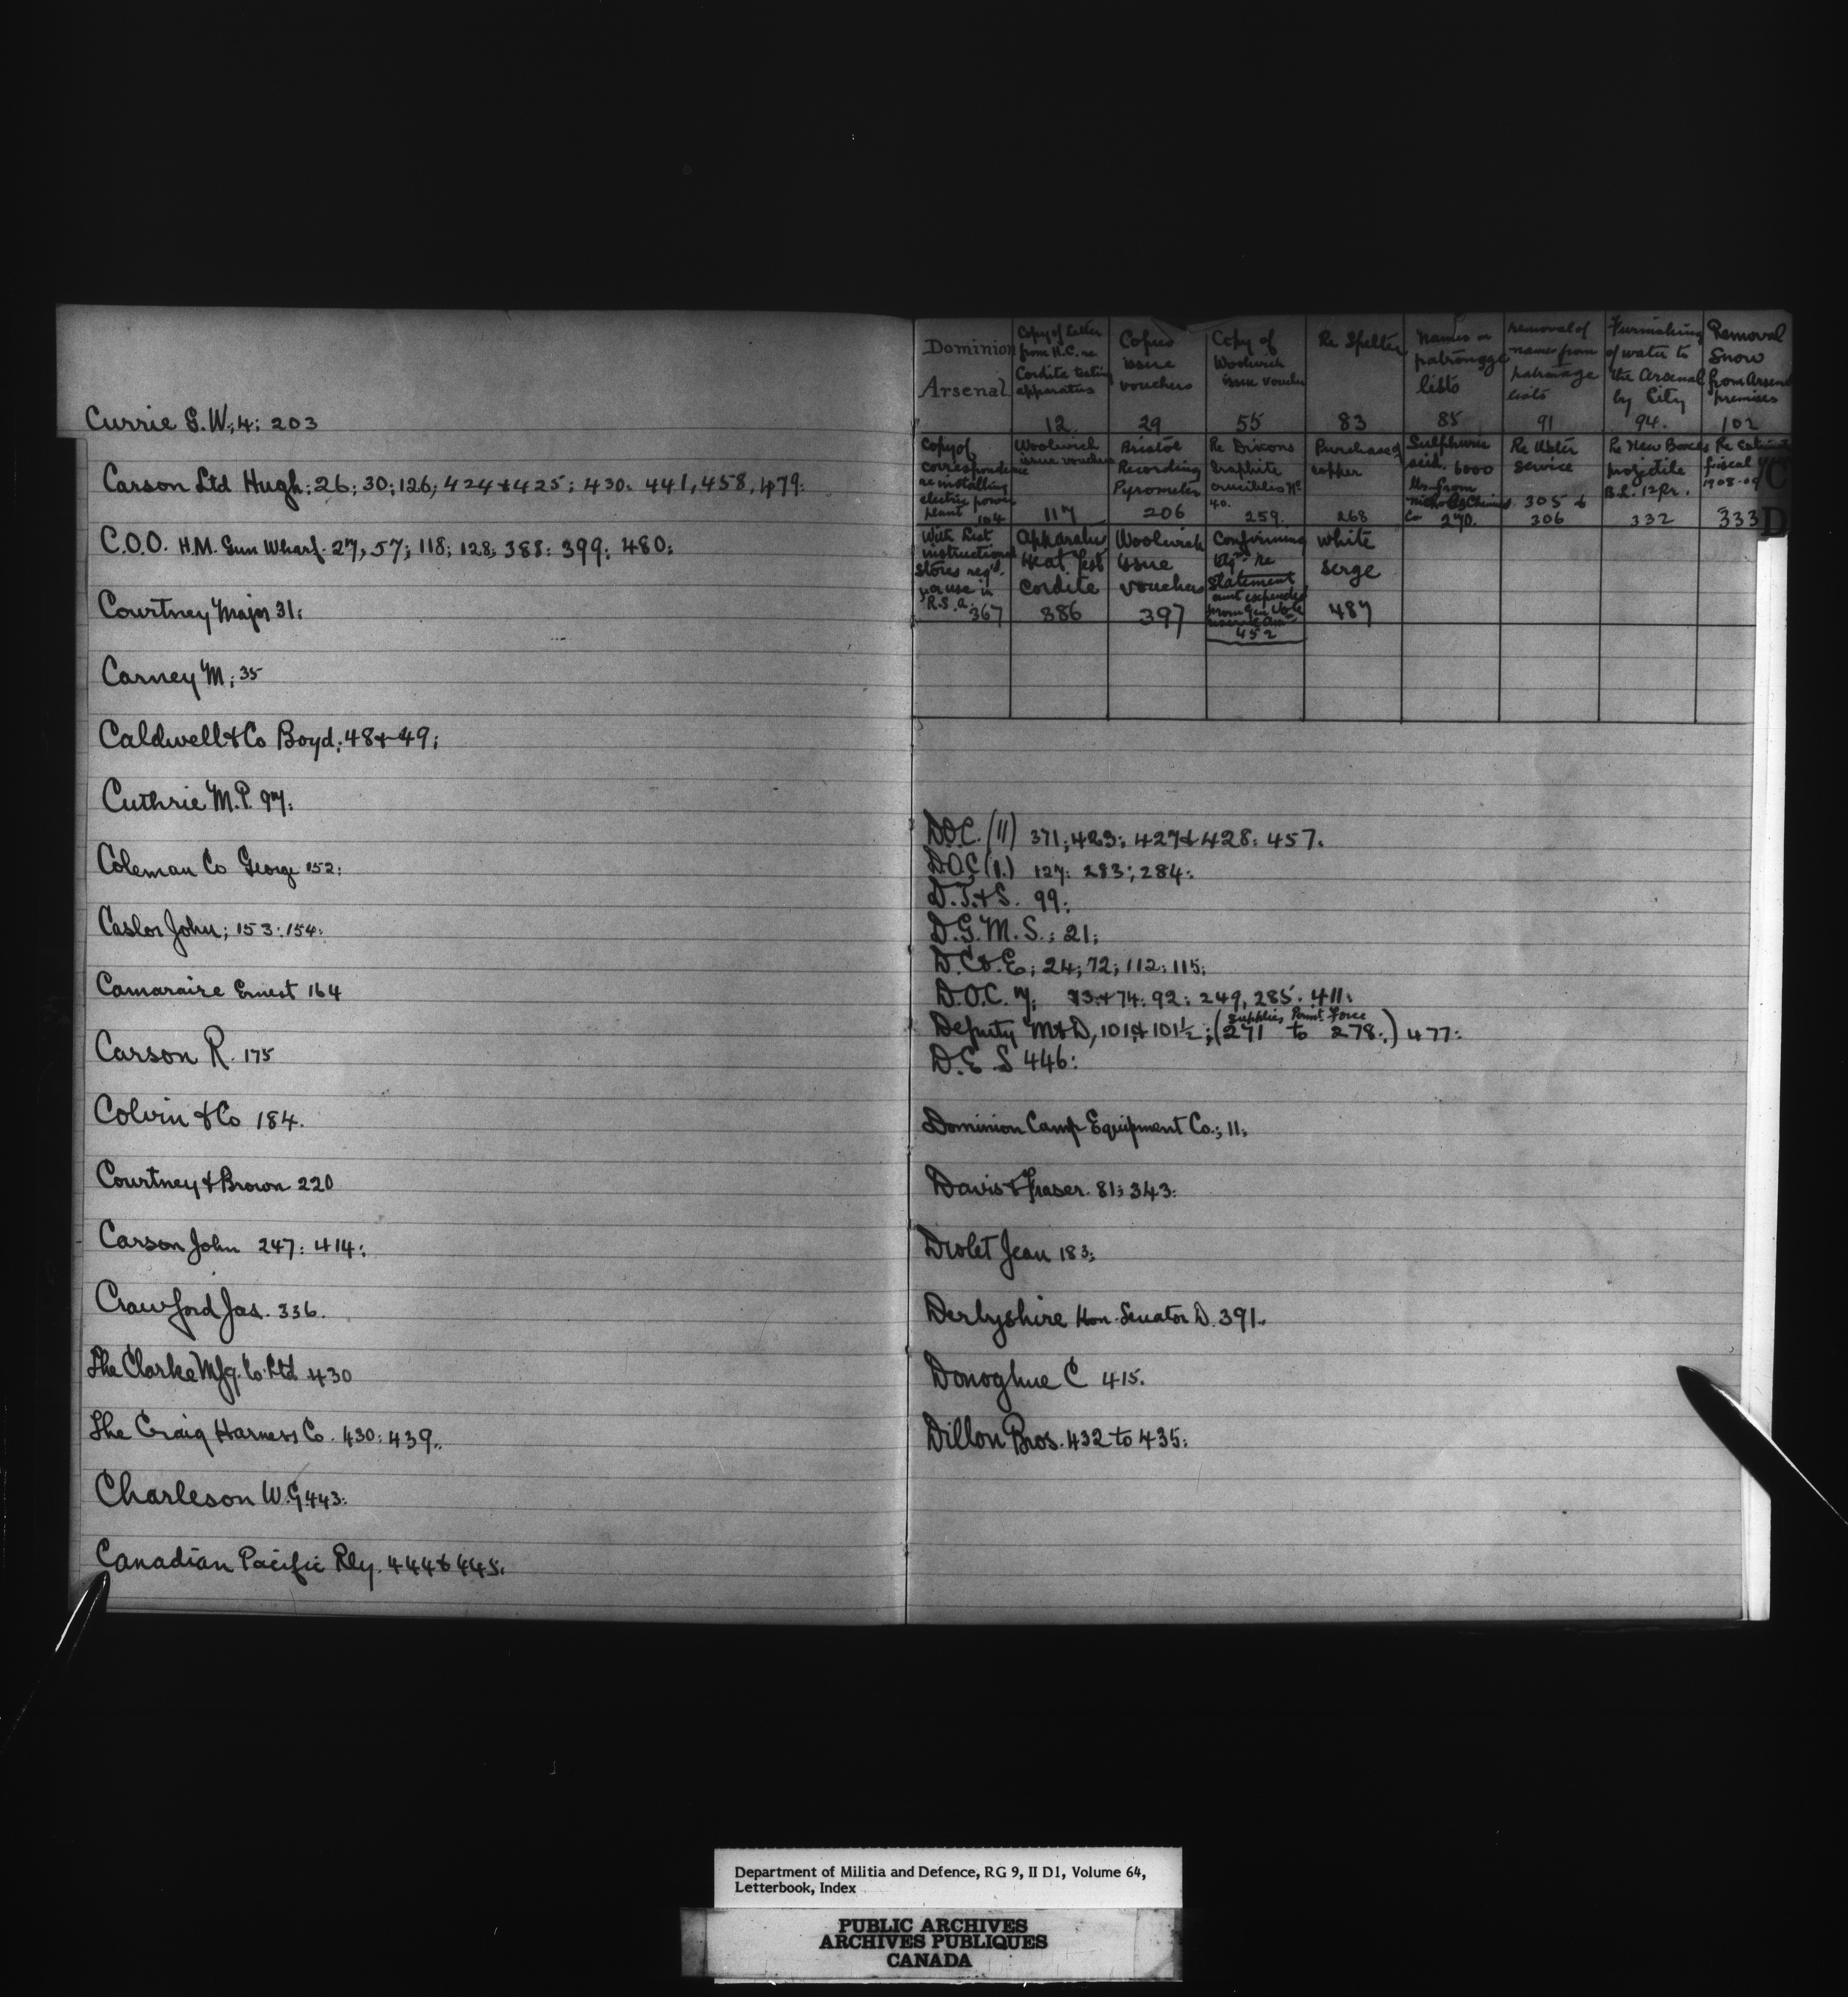 Currie G.W.; 4; 203
Carson Ltd Hugh; 26; 30; 126; 424 & 425; 430. 441, 458, 479.
C.O.O. H.M. Gun Wharf. 27, 57; 118; 128; 388; 399; 480;
Courtney Major 31;
Carney M; 35
Caldwell & Co Boyd; 48 & 49;
Cuthrie M.P. 97;
Coleman Co George 152;
Caslor John; 153; 154;
Camaraire Ernest 164
Carson R. 175
Colvin & Co 184.
Courtney & Brown 220
Carson John 247; 414;
Crawford Jas. 336.
The Clarke Mfg. Co. Ltd 430
The Craig Harness Co. 430; 439.
Charleson W.G. 443.
Canadian Pacific Rly. 444 & 445.
Dominion
Arsenal
Copy of Letter
from H.C. re
Cordite testing
apparatus
12
Copies
issue
vouchers
29
Copy of
Woolwich
issue voucher
55
Re Spelter
83
Names on
patronage
lists
85
removal of
names from
patronage
lists
91
Furnishing
of water to
the Arsenal
by City
94.
Removal
Snow
from Arsenal
premises
102
Copy of
correspondence
re installing
electric power
plant 104
Woolwich
issue vouchers
117
Bristol
Recording
Pyrometer
206
Re Dixons
Graphite
crucibles No
40.
259.
Purchase of
copper
268
Sulphuric
acid. 6000
lbs. from
Nichols Chemical
Co 270.
Re Water
service
305 &
306
Re New Boxes
projectile
B.L. 12 Pr.
332
Re Estimates
fiscal yr
1908-09
333
C
D
With List
instructional
stores reqd.
for use in
R.S.A. 367
Apparatus
Heat Test
Cordite
386
Woolwich
issue
vouchers
397
Confirming
re
Statement
amt expended
from
452
White
serge
487
D.O.C. (11) 371; 423; 427 & 428; 457.
D.O.C (1.) 127; 283; 284;
D.T. & S. 99;
D.G.M.S.; 21;
D.C. & E; 24; 72; 112; 115;
D.O.C. 7; 73 & 74; 92; 249, 285. 411;
supplies Permt. Force
Deputy M & D, 101 & 101½; (271 to 278.) 477;
D.E.S 446;
Dominion Camp Equipment Co.; 11;
Davis & Fraser. 81; 343;
Drolet Jean 183;
Derbyshire Hon. Senator D. 391.
Donoghue C 415.
Dillon Bros. 432 to 435;
Department of Militia and Defence, RG 9, II D1, Volume 64,
Letterbook, Index
PUBLIC ARCHIVES
ARCHIVES PUBLIQUES
CANADA